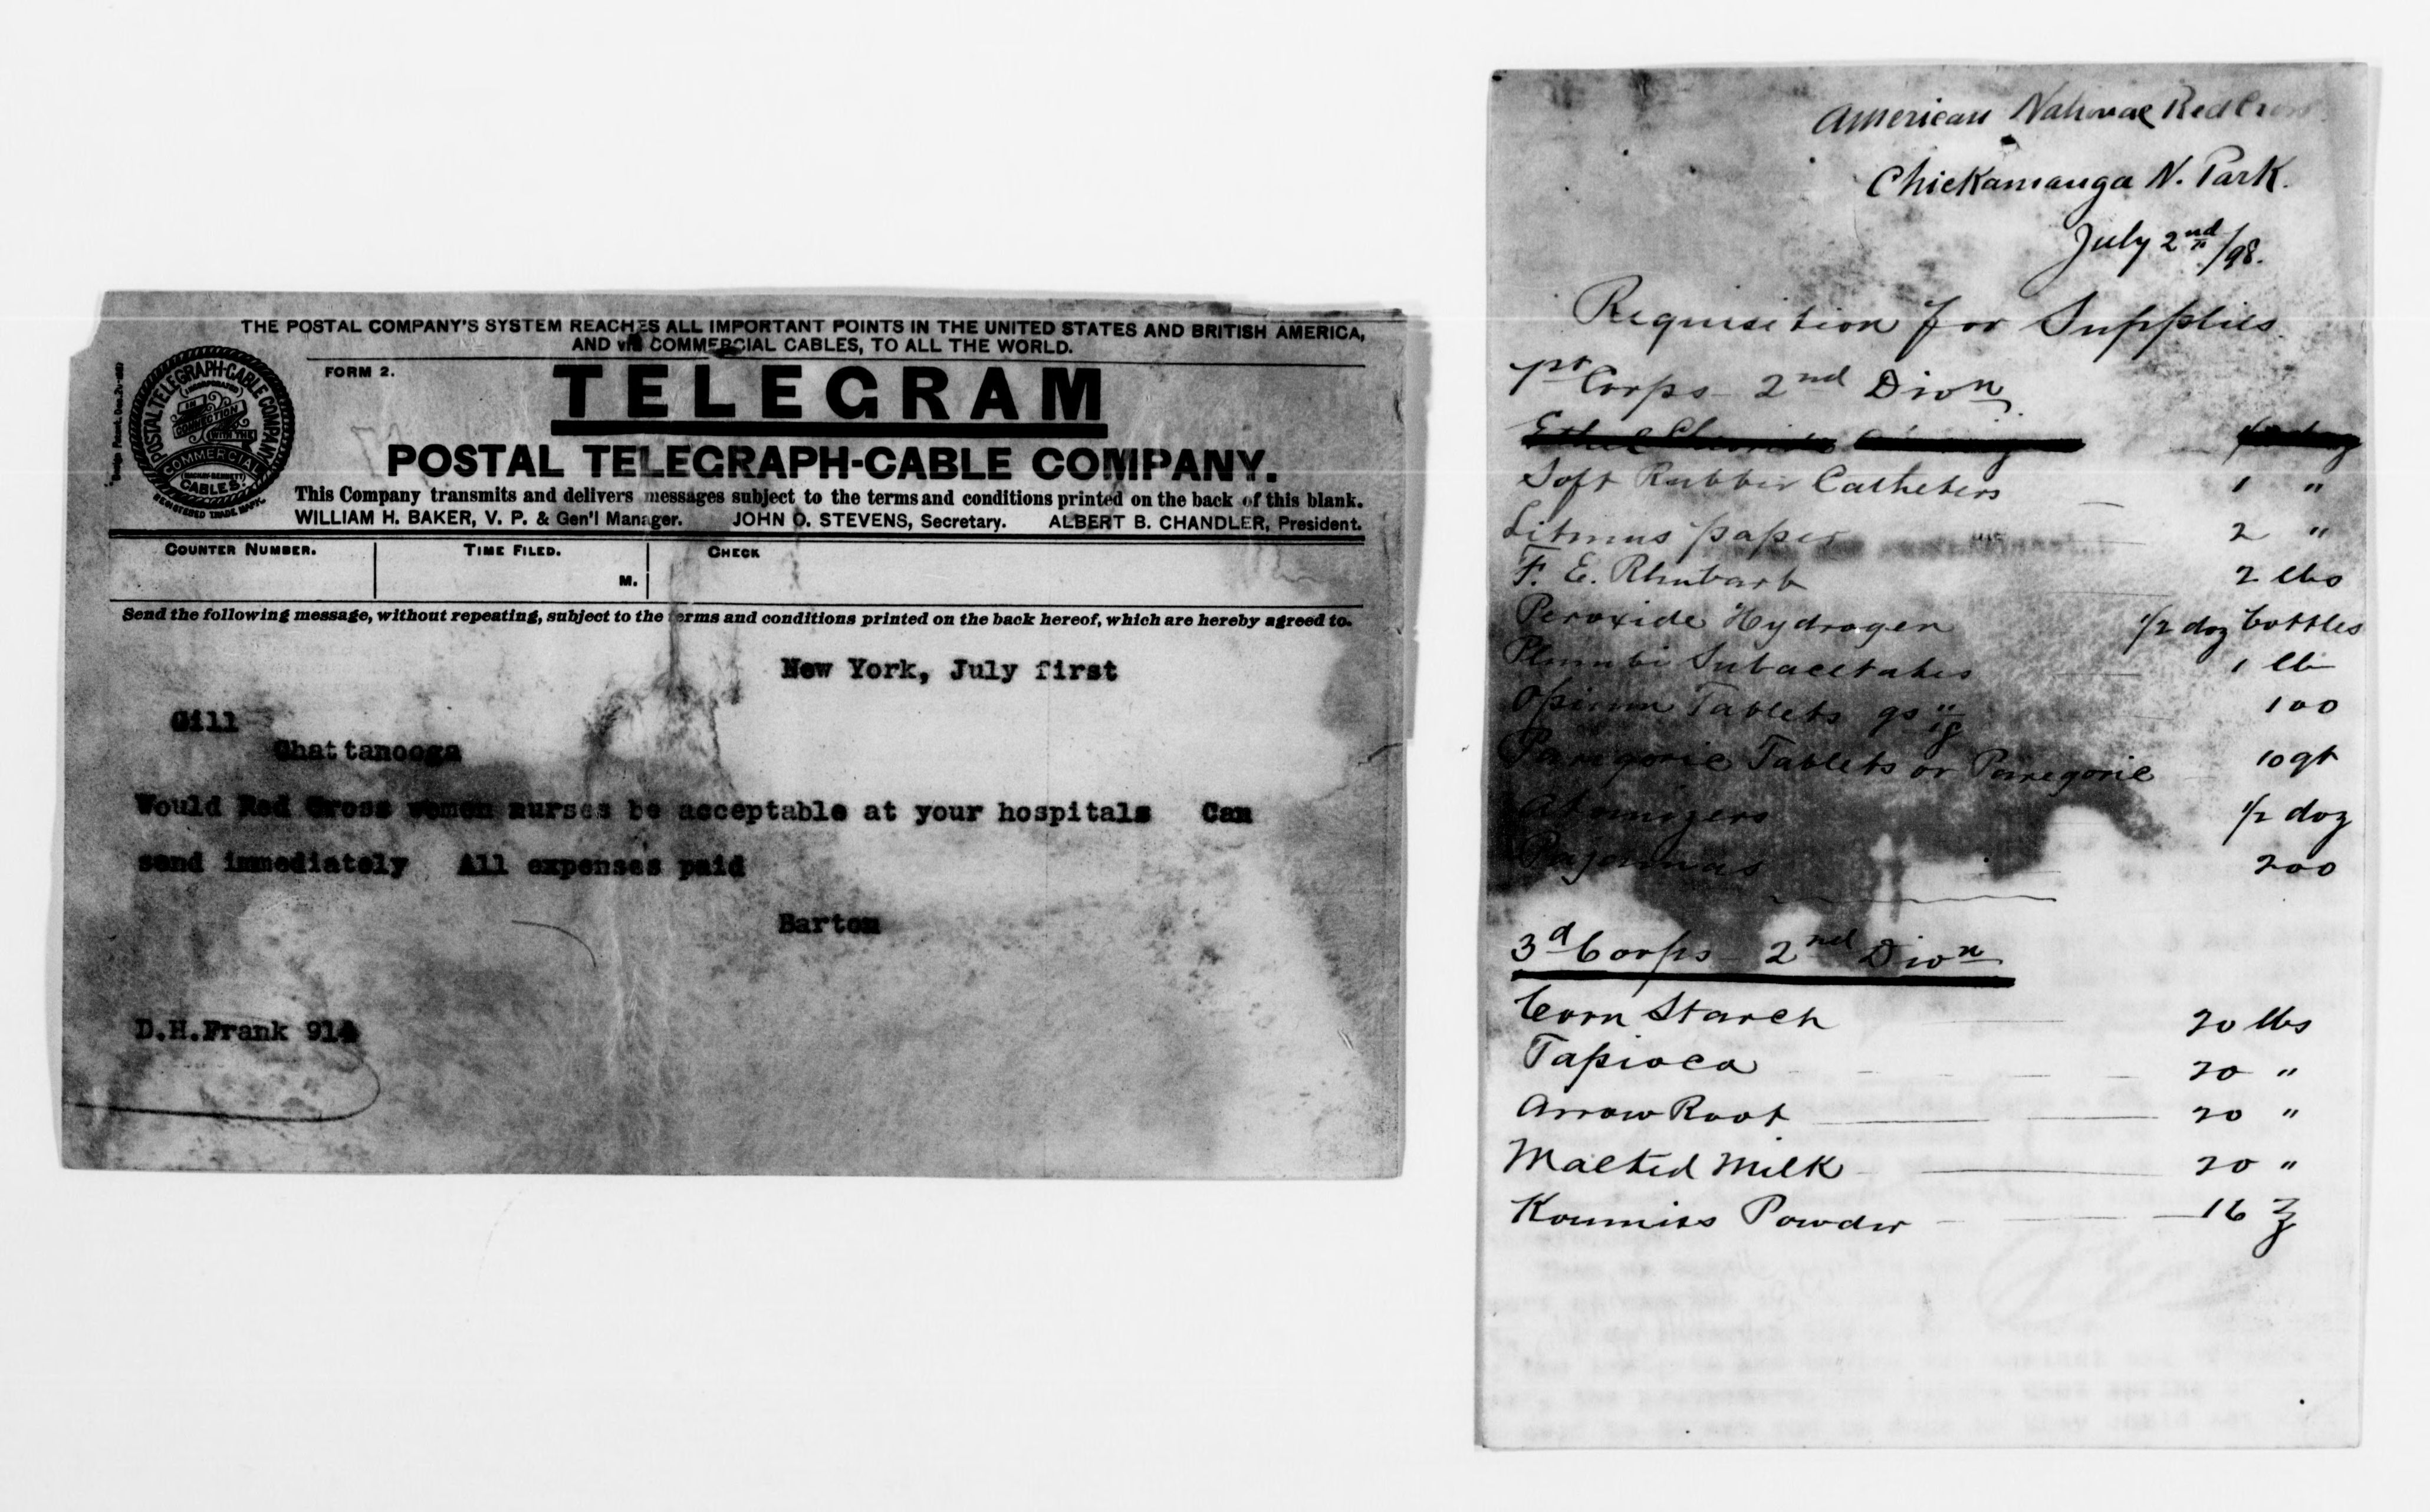 THE POSTAL COMPANY'S SYSTEM REACHES ALL IMPORTANT POINTS IN THE UNITED STATES AND BRITISH AMERICA,
AND via COMMERCIAL CABLES, TO ALL THE WORLD.
POSTAL TELEGRAPH-CABLE COMPANY
(INCORPORATED)
IN CONNECTION WITH THE
(MACKAY-BENNETT)
COMMERCIAL CABLES.
REGISTERED TRADE MARK.
FORM 2.
TELEGRAM
POSTAL TELEGRAPH-CABLE COMPANY.
This Company transmits and delivers messages subject to the terms and conditions printed on the back of this blank.
WILLIAM H. BAKER, V. P. & Gen'l Manager. JOHN O. STEVENS, Secretary. ALBERT B. CHANDLER, President.
COUNTER NUMBER. TIME FILED. CHECK
M.
Send the following message, without repeating, subject to the terms and conditions printed on the back hereof, which are hereby agreed to.
New York, July first
Gill
Chattanooga
Would Red Cross women nurses be acceptable at your hospitals Can
send immediately All expenses paid
Barton
D.H.Frank 914
American National Red Cross
Chickamauga N. Park.
July 2nd/98.
Requisition for Supplies
1st Corps - 2nd Divn
Soft Rubber Catheters 1 "
Litmus paper 2 "
F. E. Rhubarb 2 lbs
Peroxide Hydrogen 1/2 doz bottles
Plumbi Subacetatis 1 lb
Opium Tablets 100
Paregoric Tablets or Paregoric 10 qt
Atomizers 1/2 doz
Pajamas 200
3d Corps - 2nd Divn
Corn Starch 20 lbs
Tapioca 20 "
Arrow Root 20 "
Malted Milk 20 "
Koumiss Powder 16 ℥